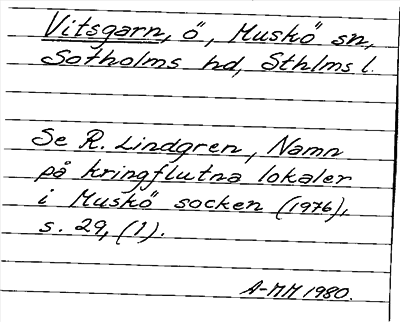 Vitsgarn, ö, Muskö sn,
Sotholms hd, Sthlms l.
Se R. Lindgren, Namn
på kringflutna lokaler
i Muskö socken (1976),
s. 29, (1).
A-MM 1980.